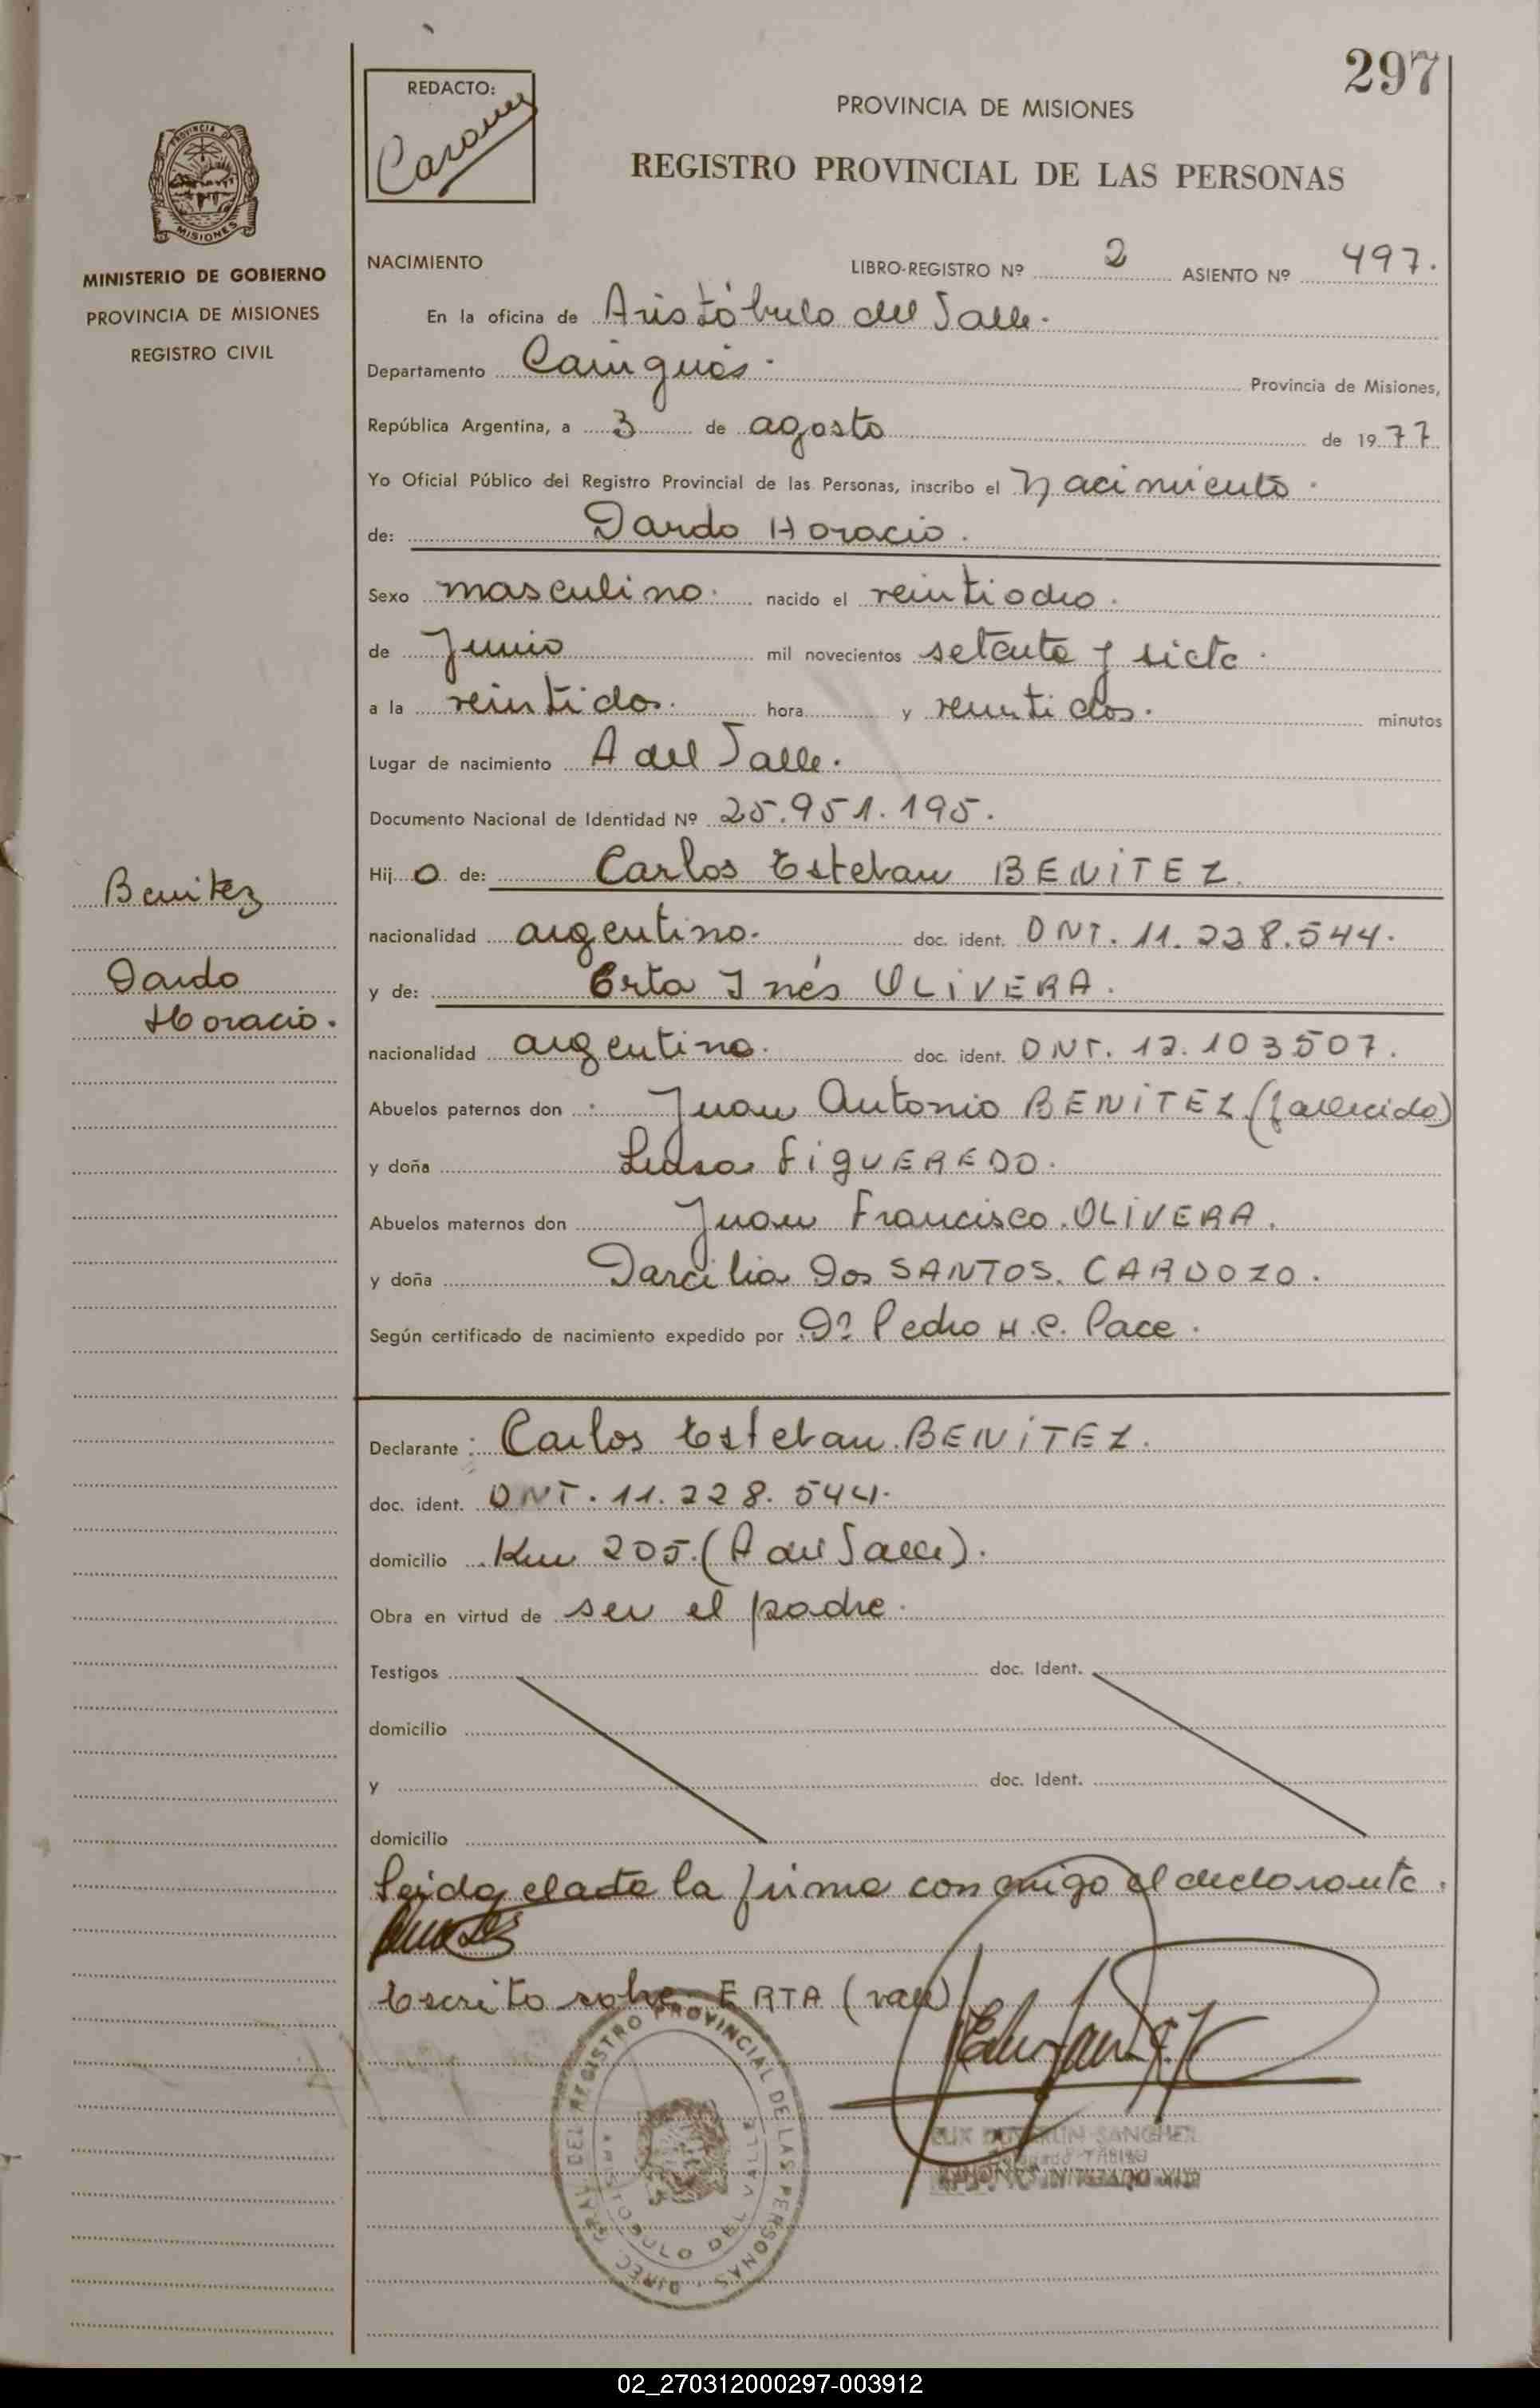 297
REDACTO:
PROVINCIA DE MISIONES
REGISTRO PROVINCIAL DE LAS PERSONAS
PROVINCIA DE
MISIONES
MINISTERIO DE GOBIERNO
PROVINCIA DE MISIONES
REGISTRO CIVIL
NACIMIENTO LIBRO-REGISTRO Nº 2 ASIENTO Nº 497.
En la oficina de Aristóbulo del Valle.
Departamento Cainguás. Provincia de Misiones,
República Argentina, a 3 de agosto de 1977
Yo Oficial Público del Registro Provincial de las Personas, inscribo el Nacimiento.
de: Dardo Horacio.
Sexo masculino. nacido el veintiocho.
de Junio mil novecientos setenta y siete.
a la veintidos. hora y veintidos. minutos
Lugar de nacimiento A del Valle.
Documento Nacional de Identidad Nº 25.951.195.
Hijo de: Carlos Esteban BENITEZ.
nacionalidad argentino. doc. ident. DNI. 11.228.544.
y de: Erta Inés OLIVERA.
nacionalidad argentina. doc. ident. DNI. 12.103507.
Abuelos paternos don Juan Antonio BENITEZ (fallecido)
y doña Luisa FIGUEREDO.
Abuelos maternos don Juan Francisco OLIVERA.
y doña Darcilia Dos SANTOS CARDOZO.
Según certificado de nacimiento expedido por Dr Pedro H.C. Pace.
Benitez
Dardo
Horacio.
Declarante: Carlos Esteban BENITEZ.
doc. ident. DNI. 11.228.544.
domicilio Km 205. (A del Valle).
Obra en virtud de ser el padre.
Testigos doc. Ident.
domicilio
y doc. Ident.
domicilio
Leida el acta la firma conmigo el declarante.
Escrito sobre ERTA (vale)
DIREC. GRAL. DEL REGISTRO PROVINCIAL DE LAS PERSONAS
ARISTOBULO DEL VALLE
02_270312000297-003912